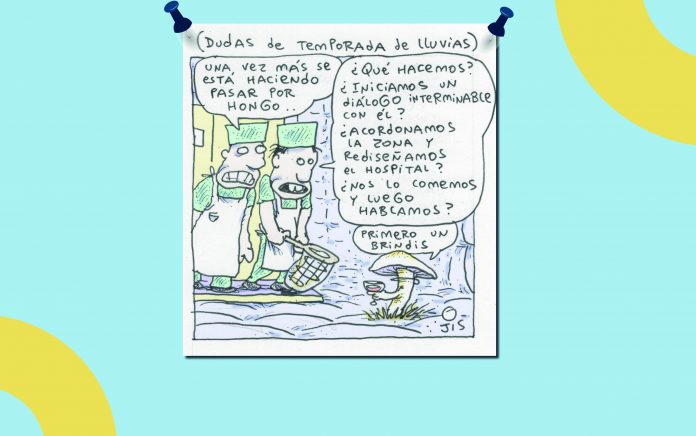 (DUDAS DE TEMPORADA DE LLUVIAS)
UNA VEZ MÁS SE
ESTÁ HACIENDO
PASAR POR
HONGO..
¿QUÉ HACEMOS?
¿INICIAMOS UN
DIÁLOGO INTERMINABLE
CON ÉL?
¿ACORDONAMOS
LA ZONA Y
REDISEÑAMOS
EL HOSPITAL?
¿NOS LO COMEMOS
Y LUEGO
HABLAMOS?
PRIMERO UN
BRINDIS
JIS